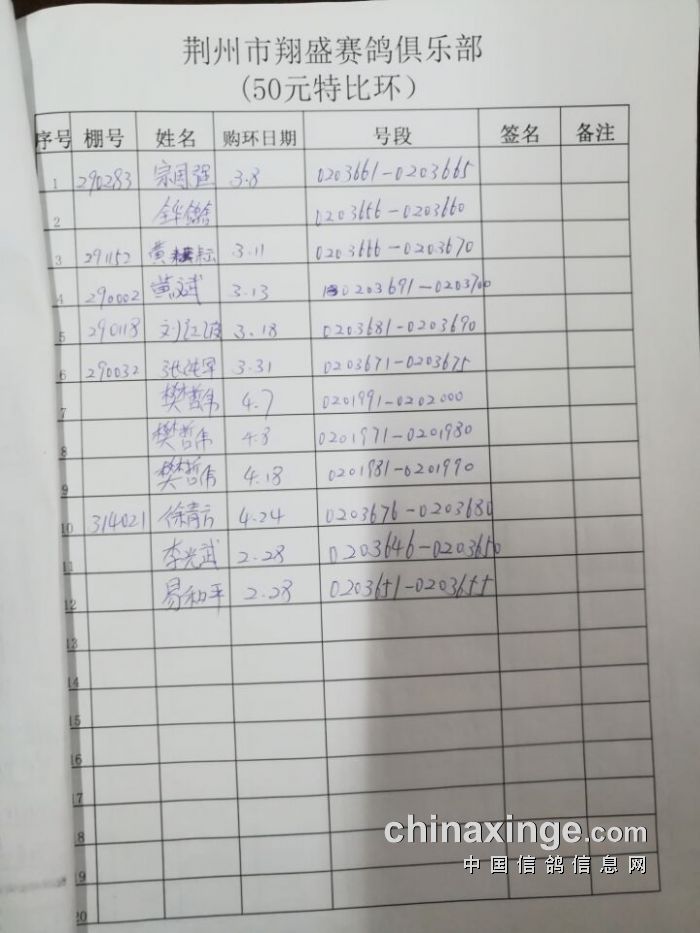 荆州市翔盛赛鸽俱乐部
(50元特比环)
序号 棚号 姓名 购环日期 号段 签名 备注
1 290283 宗国强 3.8 0203661-0203665
2 0203656-0203660
3 291152 黄 3.11 0203666-0203670
4 290002 黄斌 3.13 0203691-0203700
5 290118 刘江波 3.18 0203681-0203690
6 290032 张纯军 3.31 0203671-0203675
7 樊哲伟 4.7 0201991-0202000
8 樊哲伟 4.8 0201971-0201980
9 樊哲伟 4.18 0201981-0201990
10 314021 徐青云 4.24 0203676-0203680
11 李光武 2.28 0203646-0203650
12 易和平 2.28 0203651-0203655
13
14
15
16
17
18
19
20
chinaxinge.com
中国信鸽信息网